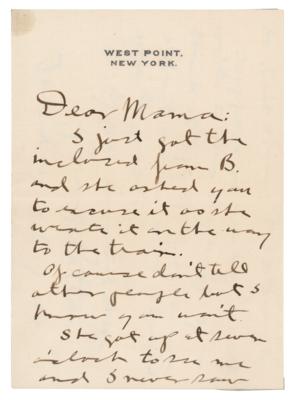 WEST POINT,
NEW YORK.
Dear Mama:
I just got the
inclosed from B.
and she asked you
to excuse it as she
wrote it on the way
to the train.
Of course don't tell
other people but I
know you wont.
She got up at seven
o'clock to see me
and I never saw